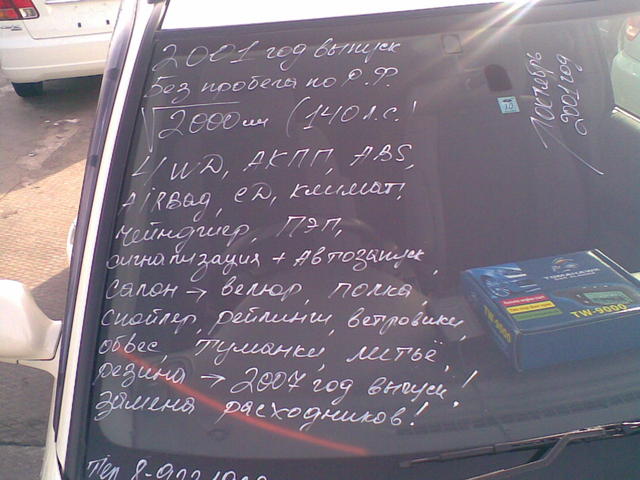 2001 год выпуск
Без пробега по Р.Ф.
√2000 см (140 л.с.!
4WD, АКПП, ABS,
AiRBag, CD, климат,
чейнджер, ПЭП,
сигнализация + Автозапуск,
салон → велюр, полка,
спойлер, рейлинги, ветровики,
обвес, туманки, литьё,
резина → 2007 год выпуск!
замена расходников!
Тел 8-922
Октябрь
2001 год
TOMAHAWK
TW-9000
TW-9000